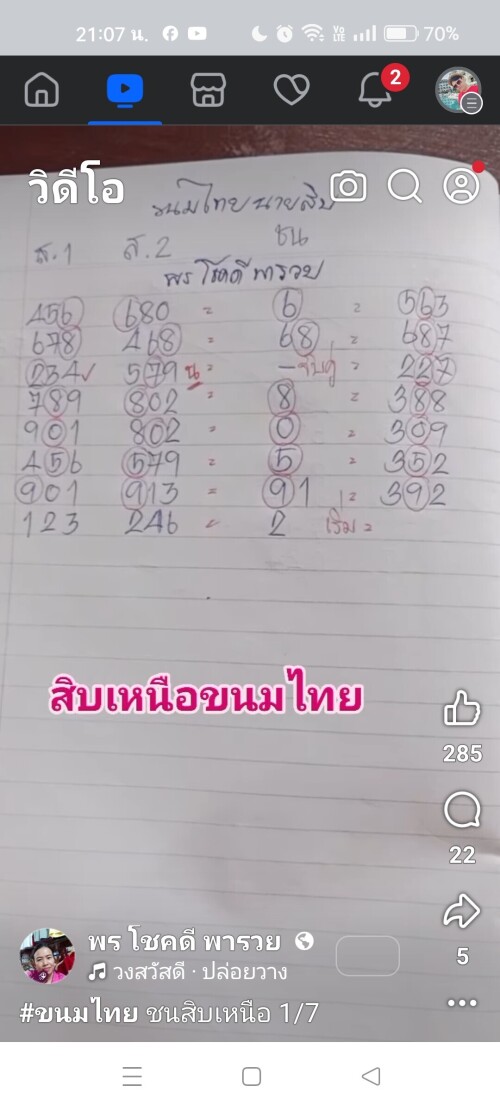 21:07 น. 70%
2
วิดีโอ
ขนมไทย นายสิบ
ส.1 ส.2 ชน
พร โชคดี พารวย
456 680 = 6 = 563
678 468 = 68 = 687
234✓ 579 น = - = 227
789 802 = 8 = 388
901 802 = 0 = 309
456 579 = 5 = 352
901 913 = 91 = 392
123 246 = 2 เริ่ม =
สิบเหนือขนมไทย
285
22
5
พร โชคดี พารวย
วงสวัสดี · ปล่อยวาง
#ขนมไทย ชนสิบเหนือ 1/7